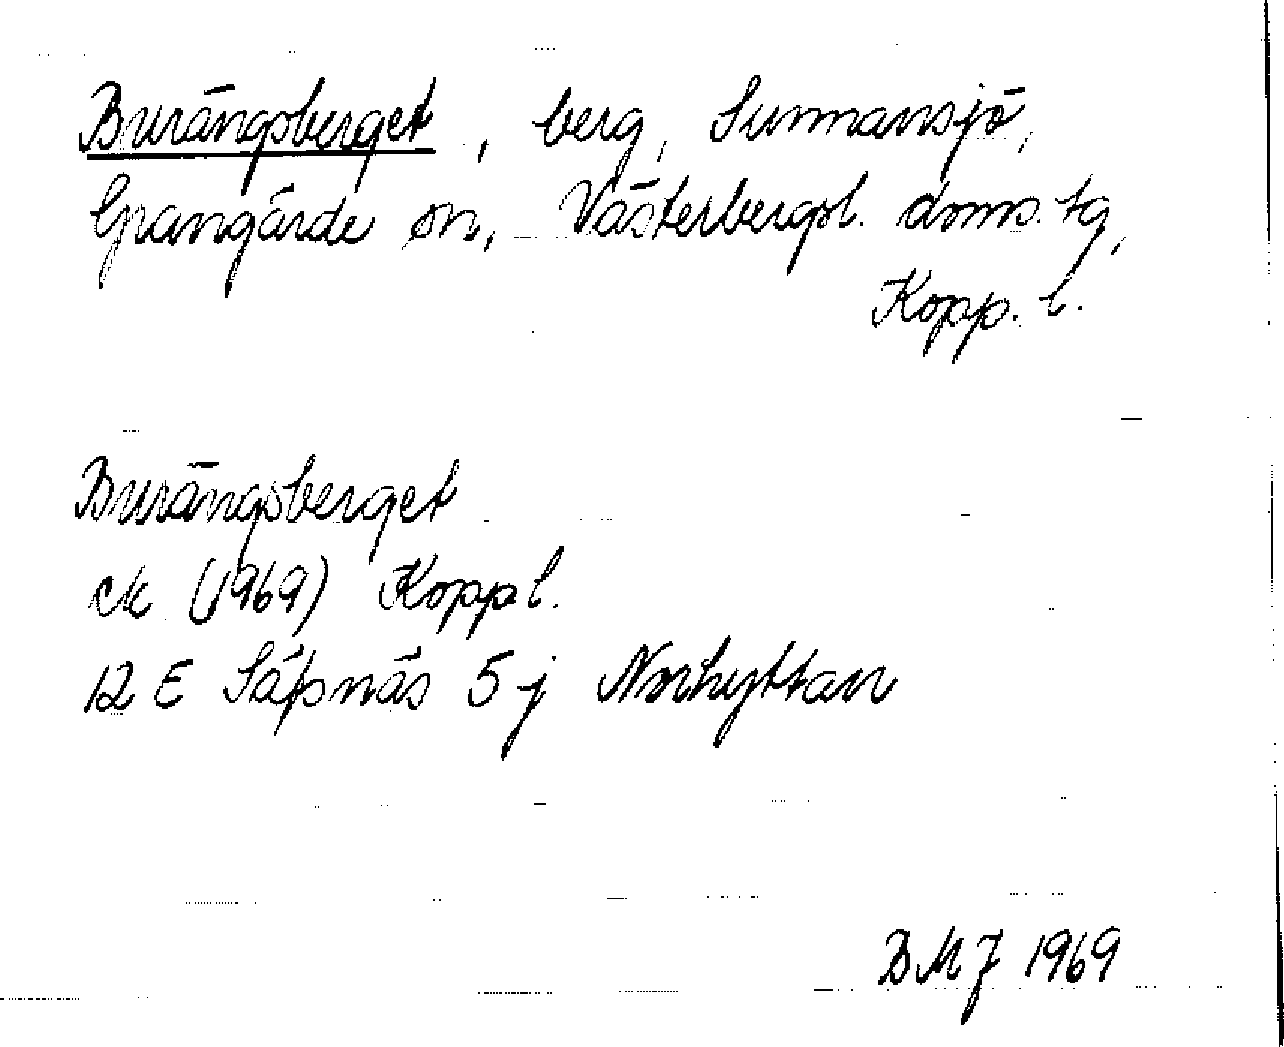 Burängsberget, berg, Sunnansjö,
Grangärde sn, Västerbergsl. doms. tg,
Kopp. l.
Burängsberget
ek (1969) Kopp l.
12 E Säfsnäs 5 j Norhyttan
BMJ 1969